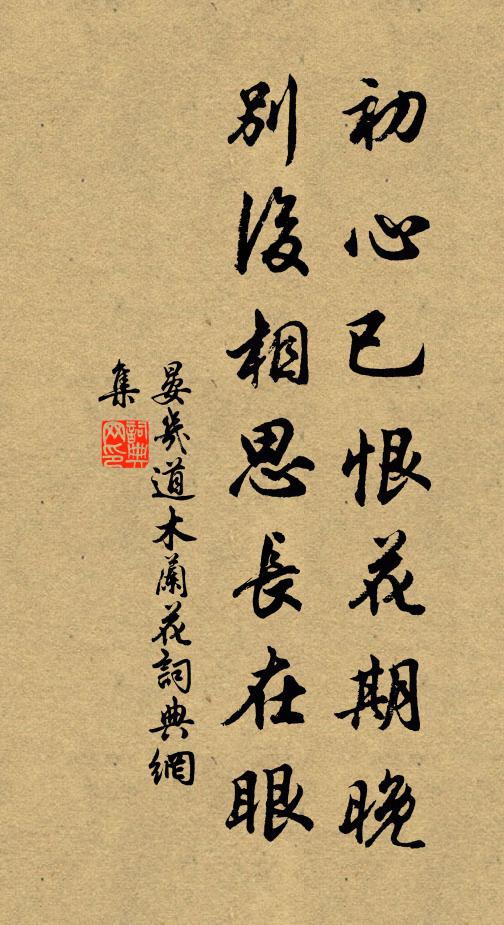 初心已恨花期晚
別後相思長在眼
晏幾道木蘭花詞典網
集
詞典
网印